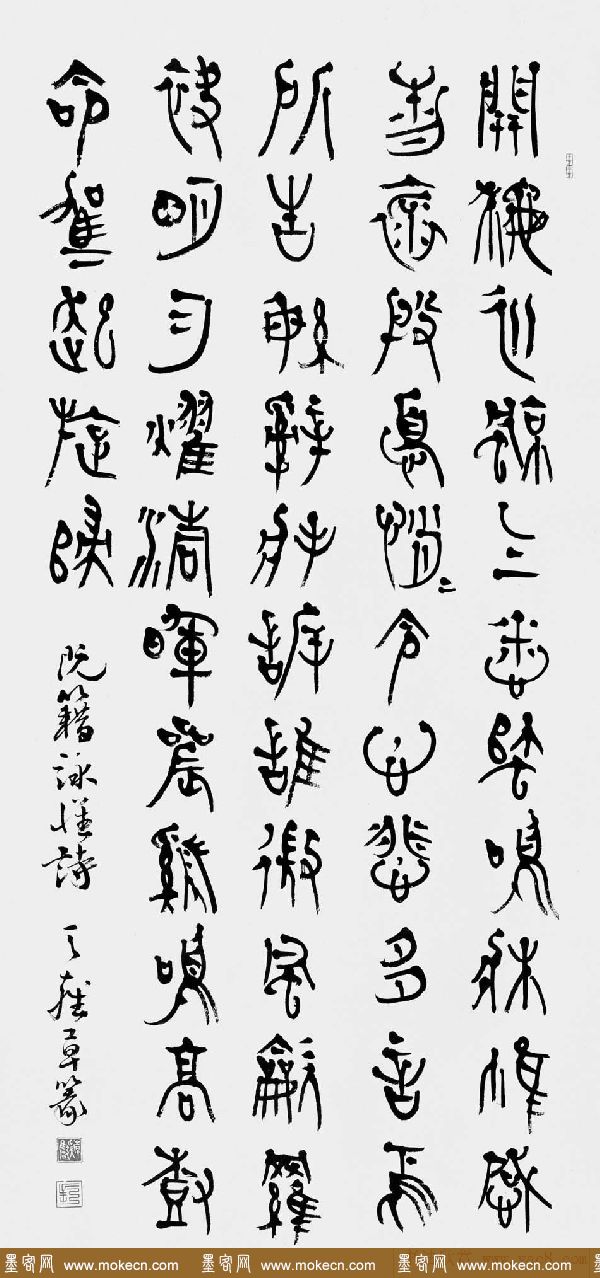 開秋兆涼气蟋蟀鳴牀帷感
物懷殷憂悄〻令心悲多言焉
所告緐辭將訴誰微風龡羅
袂明月耀清暉晨雞鳴高尌
命駕起旋歸
阮籍詠懷詩 草篆
墨客网 www.mokecn.com 墨客网 www.mokecn.com 墨客网 www.mokecn.com